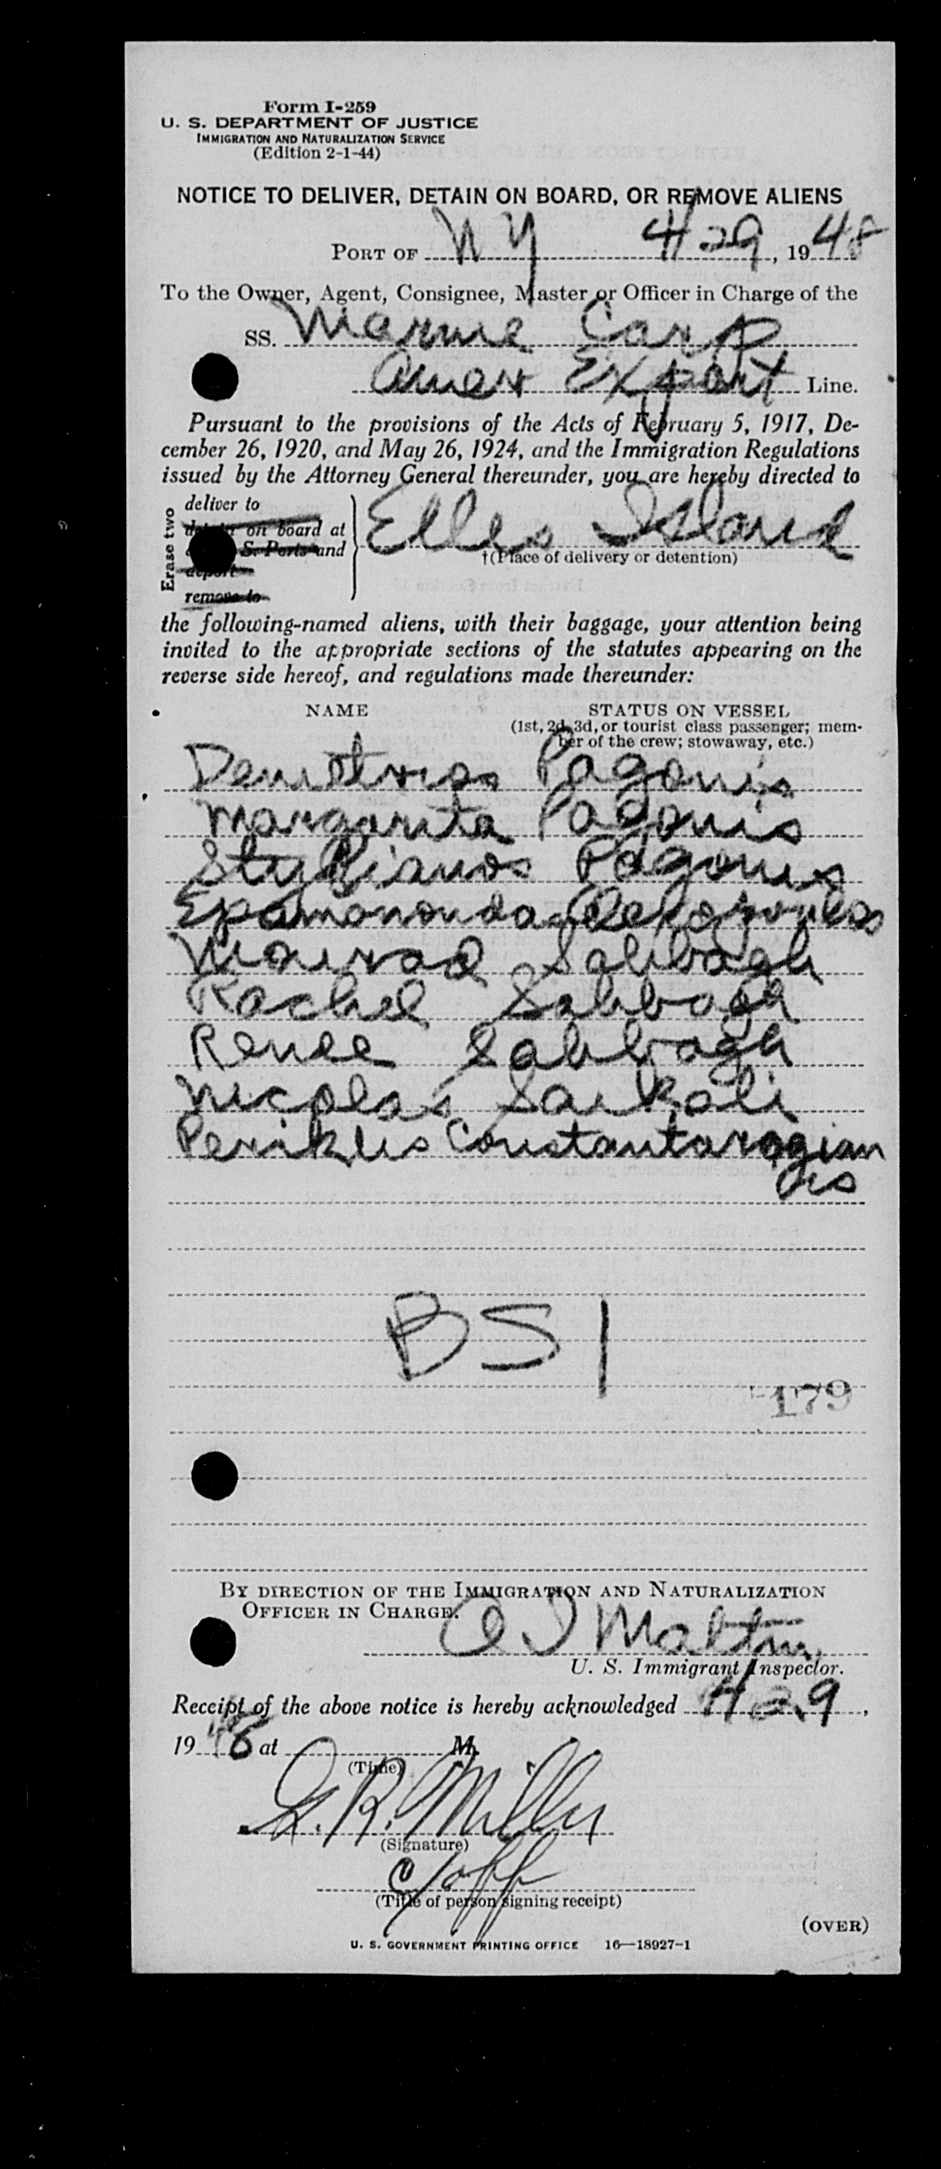 Form I-259
U. S. DEPARTMENT OF JUSTICE
IMMIGRATION AND NATURALIZATION SERVICE
(Edition 2-1-44)
NOTICE TO DELIVER, DETAIN ON BOARD, OR REMOVE ALIENS
PORT OF NY 4/29, 1948
To the Owner, Agent, Consignee, Master or Officer in Charge of the
SS. Marine Carp
Amer Export Line.
Pursuant to the provisions of the Acts of February 5, 1917, De-
cember 26, 1920, and May 26, 1924, and the Immigration Regulations
issued by the Attorney General thereunder, you are hereby directed to
Erase two
deliver to
on board at
S. Ports and
deport
remove to
Elles Island
†(Place of delivery or detention)
the following-named aliens, with their baggage, your attention being
invited to the appropriate sections of the statutes appearing on the
reverse side hereof, and regulations made thereunder:
NAME STATUS ON VESSEL
(1st, 2d, 3d, or tourist class passenger; mem-
ber of the crew; stowaway, etc.)
Demitrios Pagonis
Margarita Pagonis
Stylianos Pagonis
Epamononda
Mourad Sabbagh
Rachel Sabbagh
Renee Sabbagh
Nicolas Saikali
Periklis Constantaragian
dis
BSI
179
BY DIRECTION OF THE IMMIGRATION AND NATURALIZATION
OFFICER IN CHARGE.
U. S. Immigrant Inspector.
Receipt of the above notice is hereby acknowledged 4 29,
1948 at M.
(Time)
G. R. Miller
(Signature)
C/off
(Title of person signing receipt)
(OVER)
U. S. GOVERNMENT PRINTING OFFICE 16—18927-1